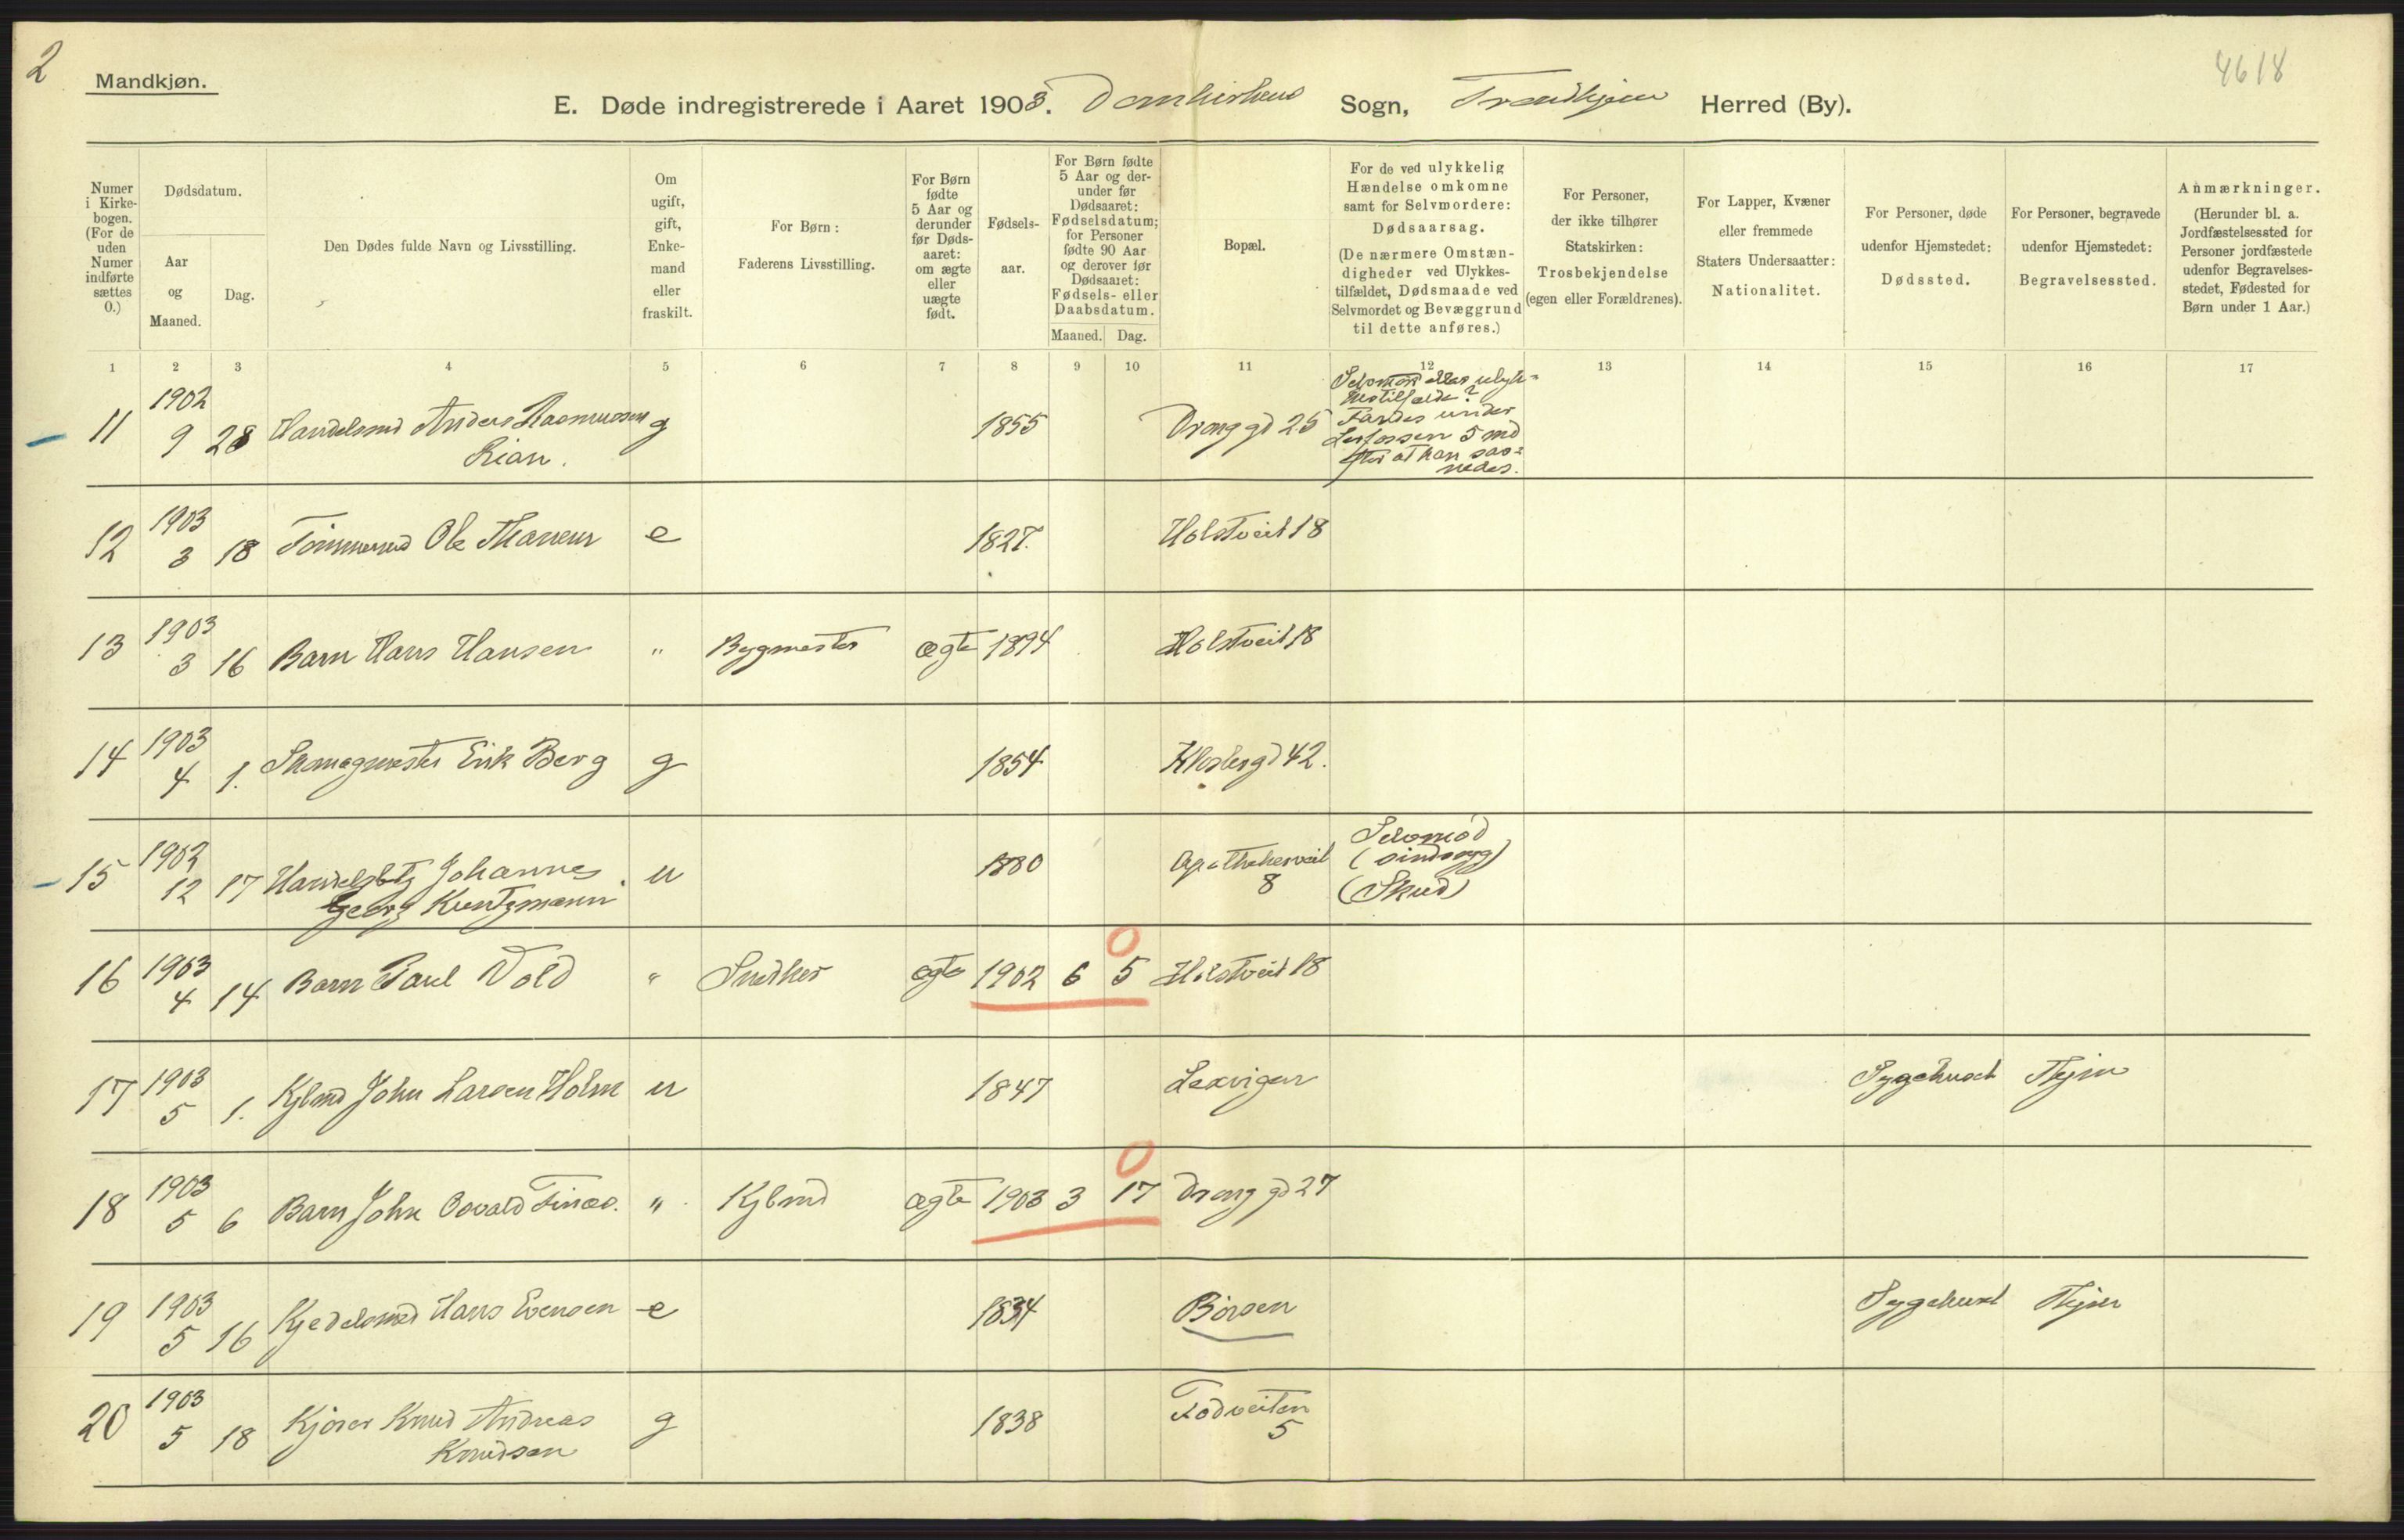 2
Mandkjøn.
4618
E. Døde indregistrerede i Aaret 1903. Domkirkens Sogn, Trondhjem Herred (By).
Numer i Kirkebogen. (For de uden Numer indførte sættes 0.)
Dødsdatum.
Aar og Maaned.
Dag.
Den Dødes fulde Navn og Livsstilling.
Om ugift, gift, Enkemand eller fraskilt.
For Børn: Faderens Livsstilling.
For Børn fødte 5 Aar og derunder før Dødsaaret: om ægte eller uægte født.
Fødselsaar.
For Børn fødte 5 Aar og derunder før Dødsaaret: Fødselsdatum; for Personer fødte 90 Aar og derover før Dødsaaret: Fødsels- eller Daabsdatum.
Maaned. Dag.
Bopæl.
For de ved ulykkelig Hændelse omkomne samt for Selvmordere: Dødsaarsag. (De nærmere Omstændigheder ved Ulykkestilfældet, Dødsmaade ved Selvmordet og Bevæggrund til dette anføres.)
For Personer, der ikke tilhører Statskirken: Trosbekjendelse (egen eller Forældrenes).
For Lapper, Kvæner eller fremmede Staters Undersaatter: Nationalitet.
For Personer, døde udenfor Hjemstedet: Dødssted.
For Personer, begravede udenfor Hjemstedet: Begravelsessted.
Anmærkninger. (Herunder bl. a. Jordfæstelsessted for Personer jordfæstede udenfor Begravelsesstedet, Fødested for Børn under 1 Aar.)
1 2 3 4 5 6 7 8 9 10 11 12 13 14 15 16 17
11 1902 9 28 Handelsmd Anders Rasmussen Lian. g 1855 Drong gd 25 Selvmord eller ulykkestilfælde? Fandes under Lerfossen 5 md efter at han savnedes.
12 1903 3 18 Tømmermd Ole e 1827. Holstveit 18
13 1903 3 16 Barn Hans Hansen " Bygmester ægte 1894 Holstveit 18
14 1903 4 1. Skomagmester Erik Berg g 1854 Klosterg d 42.
15 1902 12 17 Handelsbtj Johannes Georg Kuntzmann u 1880 Apothekerveit 8 Selvmord (sindssyg) (Skud)
16 1903 4 14 Barn Paul Vold " Snedker ægte 1902 6 5 0 Holstveit 18
17 1903 5 1. Kjbmd John Larsen Holm u 1847 Lexvigen Sygehuset Thjem
18 1903 5 6 Barn John Osvald Finæs. " Kjbmd ægte 1903 3 17 0 Drong gd 27
19 1903 5 16 Kjedelsmed Hans Evensen e 1834 Børsen Sygehuset Thjem
20 1903 5 18 Kjører Knud Andreas Knudsen g 1838 Fodveiten 5